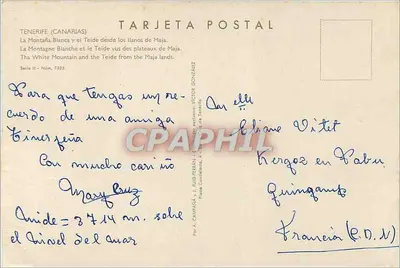 TARJETA POSTAL
TENERIFE (CANARIAS)
La Montaña Blanca y el Teide desde los llanos de Maja.
La Montagne Blanche et le Teide vus des plateaux de Maja.
The White Mountain and the Teide from the Maja lands.
Serie II - Núm.
Para que tengas un re-
cuerdo de una amiga
tinerfeña
Con mucho cariño
Mary Cruz
Mide = 3714 m. sobre
el nivel del mar
CPAPHIL
VICTOR GONZALEZ
Melle
Eliane Vitet
Kergoz en Pabu
Guingamp
Francia (C.D.N)